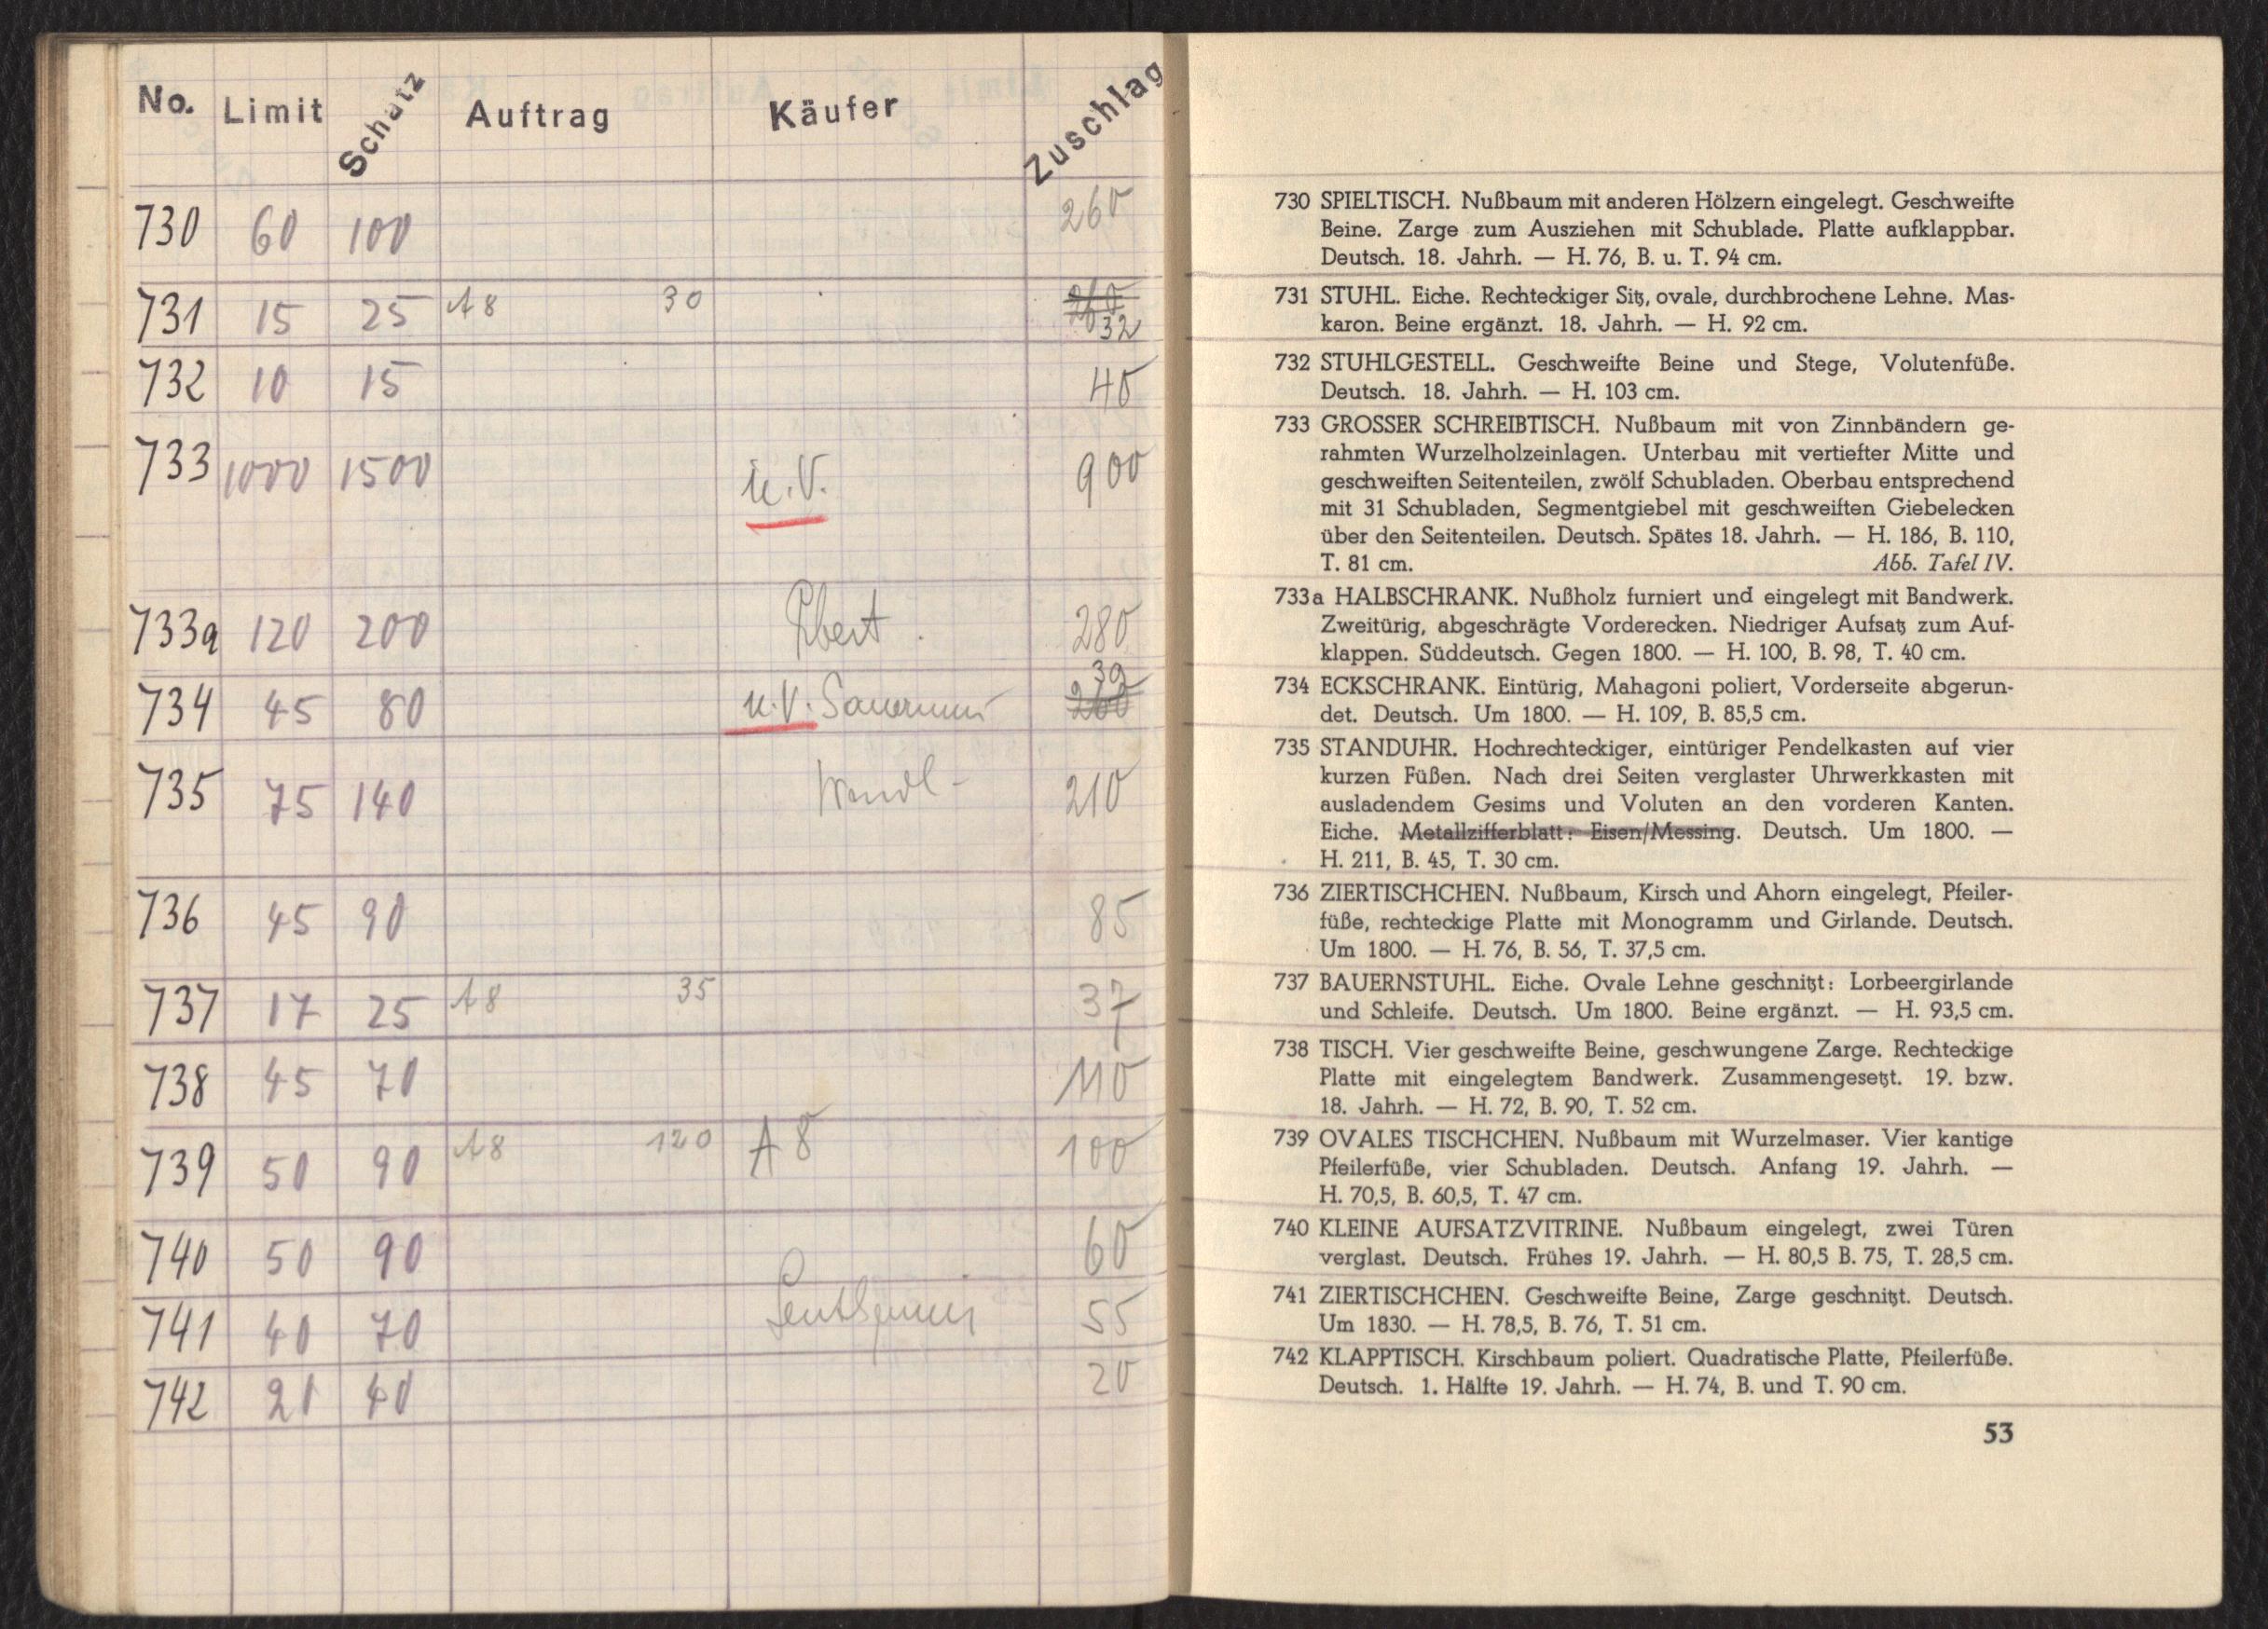 No. Limit Schatz Auftrag Käufer Zuschlag
730 60 100 260
731 15 25 A8 30 32
732 10 15 40
733 1000 1500 u.V. 900
733a 120 200 280
734 45 80 u.V. 39
735 75 140 210
736 45 90 85
737 17 25 A8 35 37
738 45 70 110
739 50 90 A8 120 A8 100
740 50 90 60
741 40 70 55
742 20 40 20
730 SPIELTISCH. Nußbaum mit anderen Hölzern eingelegt. Geschweifte
Beine. Zarge zum Ausziehen mit Schublade. Platte aufklappbar.
Deutsch. 18. Jahrh. — H. 76, B. u. T. 94 cm.
731 STUHL. Eiche. Rechteckiger Sitz, ovale, durchbrochene Lehne. Mas-
karon. Beine ergänzt. 18. Jahrh. — H. 92 cm.
732 STUHLGESTELL. Geschweifte Beine und Stege, Volutenfüße.
Deutsch. 18. Jahrh. — H. 103 cm.
733 GROSSER SCHREIBTISCH. Nußbaum mit von Zinnbändern ge-
rahmten Wurzelholzeinlagen. Unterbau mit vertiefter Mitte und
geschweiften Seitenteilen, zwölf Schubladen. Oberbau entsprechend
mit 31 Schubladen, Segmentgiebel mit geschweiften Giebelecken
über den Seitenteilen. Deutsch. Spätes 18. Jahrh. — H. 186, B. 110,
T. 81 cm. Abb. Tafel IV.
733a HALBSCHRANK. Nußholz furniert und eingelegt mit Bandwerk.
Zweitürig, abgeschrägte Vorderecken. Niedriger Aufsatz zum Auf-
klappen. Süddeutsch. Gegen 1800. — H. 100, B. 98, T. 40 cm.
734 ECKSCHRANK. Eintürig, Mahagoni poliert, Vorderseite abgerun-
det. Deutsch. Um 1800. — H. 109, B. 85,5 cm.
735 STANDUHR. Hochrechteckiger, eintüriger Pendelkasten auf vier
kurzen Füßen. Nach drei Seiten verglaster Uhrwerkkasten mit
ausladendem Gesims und Voluten an den vorderen Kanten.
Eiche. Metallzifferblatt: Eisen/Messing. Deutsch. Um 1800. —
H. 211, B. 45, T. 30 cm.
736 ZIERTISCHCHEN. Nußbaum, Kirsch und Ahorn eingelegt, Pfeiler-
füße, rechteckige Platte mit Monogramm und Girlande. Deutsch.
Um 1800. — H. 76, B. 56, T. 37,5 cm.
737 BAUERNSTUHL. Eiche. Ovale Lehne geschnitzt: Lorbeergirlande
und Schleife. Deutsch. Um 1800. Beine ergänzt. — H. 93,5 cm.
738 TISCH. Vier geschweifte Beine, geschwungene Zarge. Rechteckige
Platte mit eingelegtem Bandwerk. Zusammengesetzt. 19. bzw.
18. Jahrh. — H. 72, B. 90, T. 52 cm.
739 OVALES TISCHCHEN. Nußbaum mit Wurzelmaser. Vier kantige
Pfeilerfüße, vier Schubladen. Deutsch. Anfang 19. Jahrh. —
H. 70,5, B. 60,5, T. 47 cm.
740 KLEINE AUFSATZVITRINE. Nußbaum eingelegt, zwei Türen
verglast. Deutsch. Frühes 19. Jahrh. — H. 80,5 B. 75, T. 28,5 cm.
741 ZIERTISCHCHEN. Geschweifte Beine, Zarge geschnitzt. Deutsch.
Um 1830. — H. 78,5, B. 76, T. 51 cm.
742 KLAPPTISCH. Kirschbaum poliert. Quadratische Platte, Pfeilerfüße.
Deutsch. 1. Hälfte 19. Jahrh. — H. 74, B. und T. 90 cm.
53